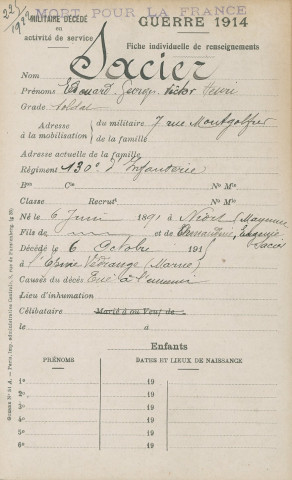 MORT POUR LA FRANCE
MILITAIRE DÉCÉDÉ
en
activité de service
GUERRE 1914
Fiche individuelle de renseignements
Nom Sacier
Prénoms Edouard Georges Victor Henri
Grade Soldat
Adresse à la mobilisation du militaire 7 rue Montgolfier
de la famille
Adresse actuelle de la famille
Régiment 130e d'Infanterie
Bon Cie No Mle
Classe Recrut No Mle
Né le 6 Juin 1891 à Niort (Mayenne
Fils de et de Eugénie
Sacier
Décédé le 6 Octobre 191
à l'Epine Védrange (Marne)
Causes du décès Tué à l'ennemi
Lieu d'inhumation
Célibataire Marié à ou Veuf de
le à
Enfants
PRÉNOMS DATES ET LIEUX DE NAISSANCE
1o 19
2o 19
3o 19
4o 19
5o 19
6o 19